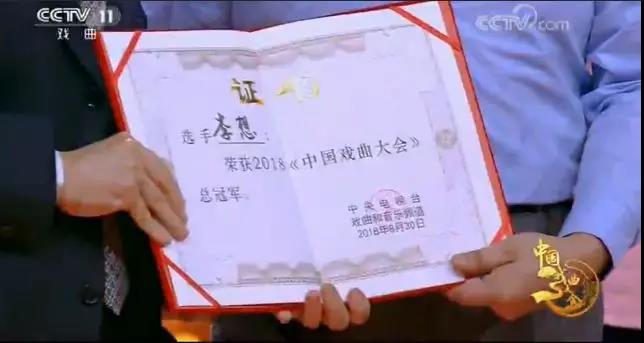 CCTV 11
戏曲
CCTV.com
证书
选手李想：
荣获2018《中国戏曲大会》
总冠军。
中央电视台
戏曲和音乐频道
2018年8月30日
中国戏曲大会